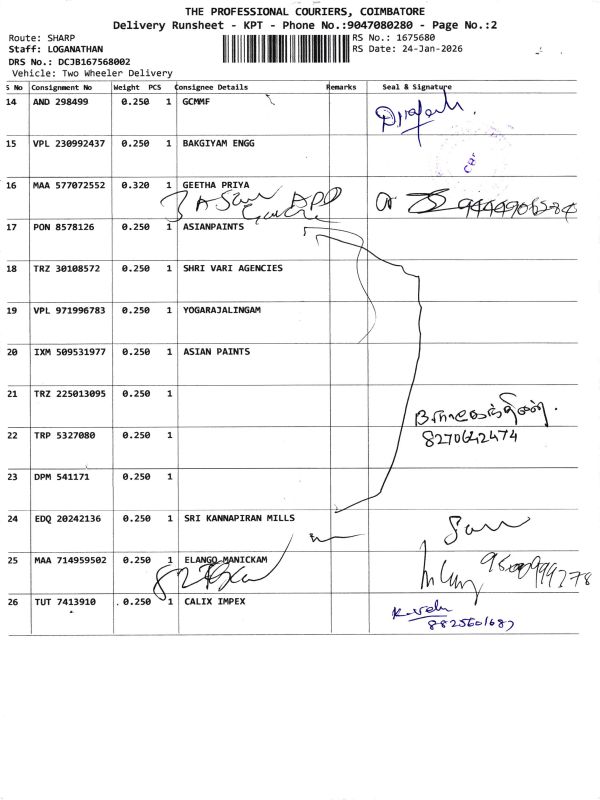 THE PROFESSIONAL COURIERS, COIMBATORE
Delivery Runsheet - KPT - Phone No.:9047080280 - Page No.:2
Route: SHARP
Staff: LOGANATHAN
DRS No.: DCJB167568002
Vehicle: Two Wheeler Delivery
RS No.: 1675680
RS Date: 24-Jan-2026
S No Consignment No Weight PCS Consignee Details Remarks Seal & Signature
14 AND 298499 0.250 1 GCMMF
15 VPL 230992437 0.250 1 BAKGIYAM ENGG
16 MAA 577072552 0.320 1 GEETHA PRIYA
17 PON 8578126 0.250 1 ASIANPAINTS
18 TRZ 30108572 0.250 1 SHRI VARI AGENCIES
19 VPL 971996783 0.250 1 YOGARAJALINGAM
20 IXM 509531977 0.250 1 ASIAN PAINTS
21 TRZ 225013095 0.250 1
22 TRP 5327080 0.250 1
8270642474
23 DPM 541171 0.250 1
24 EDQ 20242136 0.250 1 SRI KANNAPIRAN MILLS
25 MAA 714959502 0.250 1 ELANGO MANICKAM
26 TUT 7413910 0.250 1 CALIX IMPEX